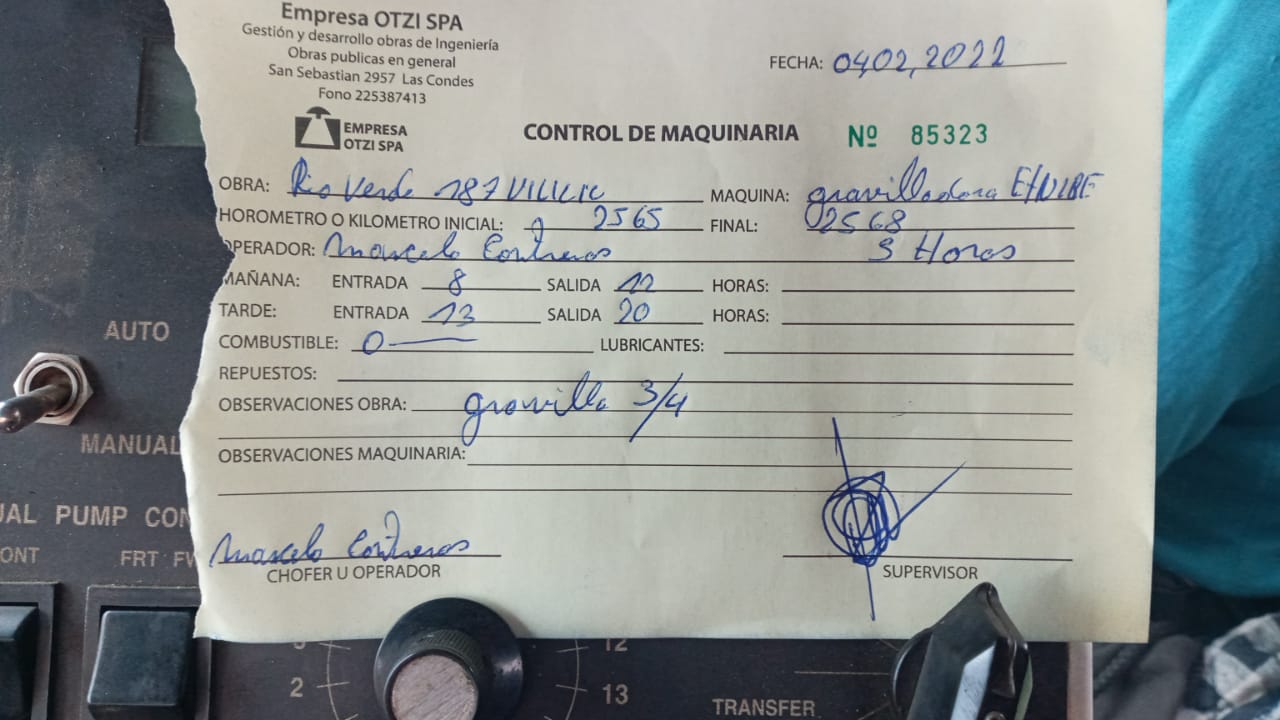 Empresa OTZI SPA
Gestión y desarrollo obras de Ingeniería
Obras publicas en general
San Sebastian 2957 Las Condes
Fono 225387413
EMPRESA
OTZI SPA
FECHA: 0402,2022
CONTROL DE MAQUINARIA Nº 85323
OBRA: Rio Verde 187 MAQUINA: gravilladora
HOROMETRO O KILOMETRO INICIAL: 2565 FINAL: 02568
OPERADOR: Marcelo Contreras 3 Horas
MAÑANA: ENTRADA 8 SALIDA 12 HORAS:
TARDE: ENTRADA 13 SALIDA 20 HORAS:
COMBUSTIBLE: 0 LUBRICANTES:
REPUESTOS:
OBSERVACIONES OBRA: gravilla 3/4
OBSERVACIONES MAQUINARIA:
Marcelo Contreras
CHOFER U OPERADOR SUPERVISOR
AUTO
MANUAL
UAL PUMP CON
ONT FRT FW
2 12
13
TRANSFER